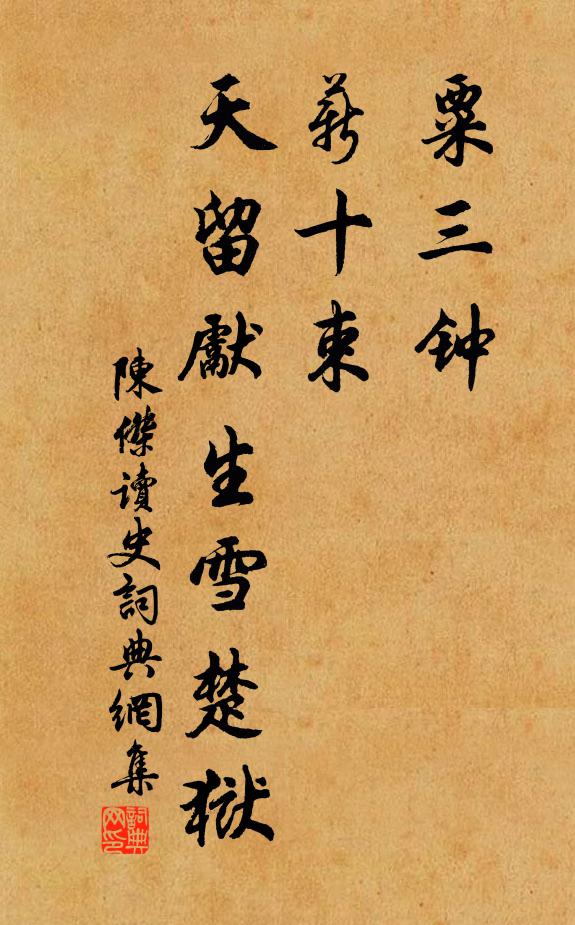 粟三钟
薪十束
天留獻生雪楚獄
陳傑讀史詞典網集
詞典网印